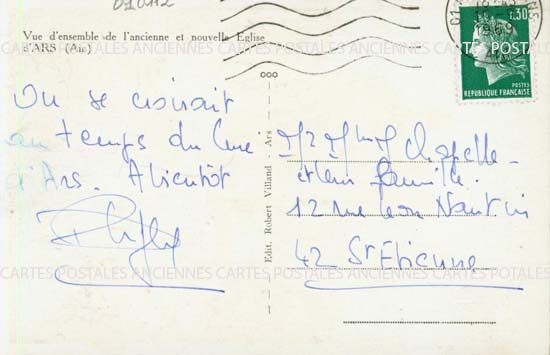 010112
Vue d'ensemble de l'ancienne et nouvelle Eglise
d'ARS (Ain)
0.30
POSTES
REPUBLIQUE FRANÇAISE
1969
On se croirait
au temps du Curé
d'Ars. A bientôt
Edit. Robert Villand - Ars
Chapelle
et leur famille.
12 rue
42 St Etienne
CARTES POSTALES ANCIENNES CARTES POSTALES ANCIENNES
CARTES POSTALES ANCIENNES CARTES POSTALES